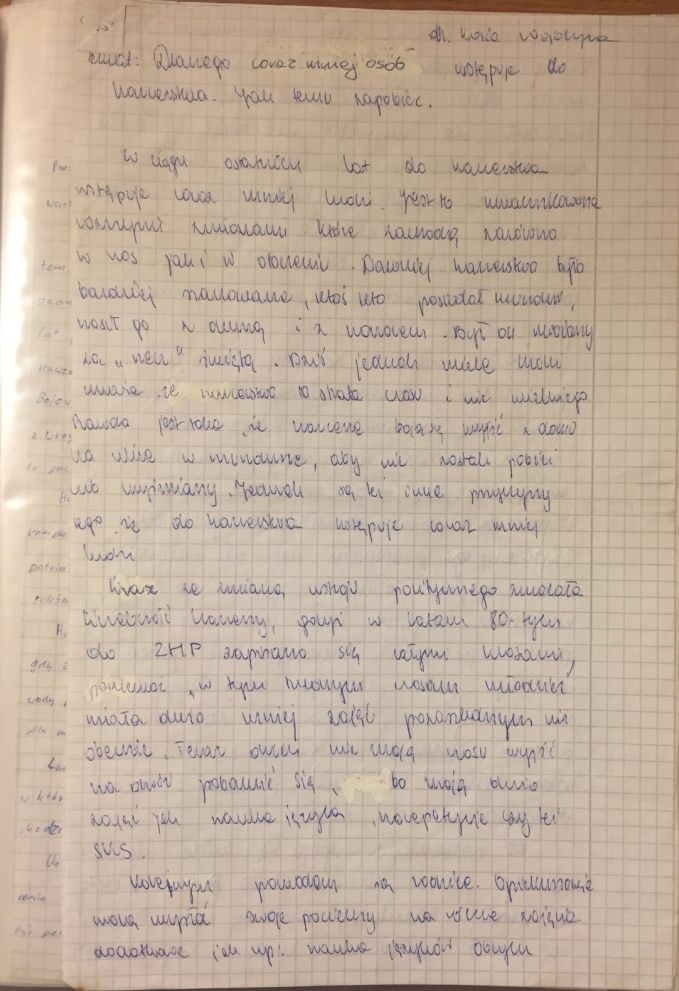 dh. Kasia
temat: Dlaczego coraz mniej osób wstępuje do
harcerstwa. Jak temu zapobiec.
W ciągu ostatnich lat do harcerstwa
wstępuje coraz mniej ludzi. Jest to uwarunkowane
zmianami które zachodzą zarówno
w nas jak i w otoczeniu. Dawniej harcerstwo było
bardziej szanowane, ktoś kto posiadał mundur,
nosił go z dumą i z honorem. Był on uważany
za "rzecz" świętą. Dziś jednak wiele ludzi
uważa że harcerstwo to strata czasu i nic wielkiego.
Prawda jest taka, że harcerze boją się wyjść z domu
na ulice w mundurze, aby nie zostali pobici
lub wyśmiany. Jednak są też inne przyczyny
tego że do harcerstwa wstępuje coraz mniej
ludzi.
Wraz ze zmianą ustroju politycznego zmalała
liczebność harcerzy, gdyż w latach 80-tych
do ZHP zapisano się całymi klasami,
ponieważ w tych trudnych czasach młodzież
miała dużo mniej zajęć pozaszkolnych niż
obecnie. Teraz dzieci nie mają czasu wyjść
na dwór pobawić się, bo mają dużo
zajęć jak nauka języka, korepetycje czy też
SKS.
Kolejnym powodem są rodzice. Opiekunowie
wolą wysłać swoje pociechy na różne zajęcia
dodatkowe jak np. nauka języków obcych